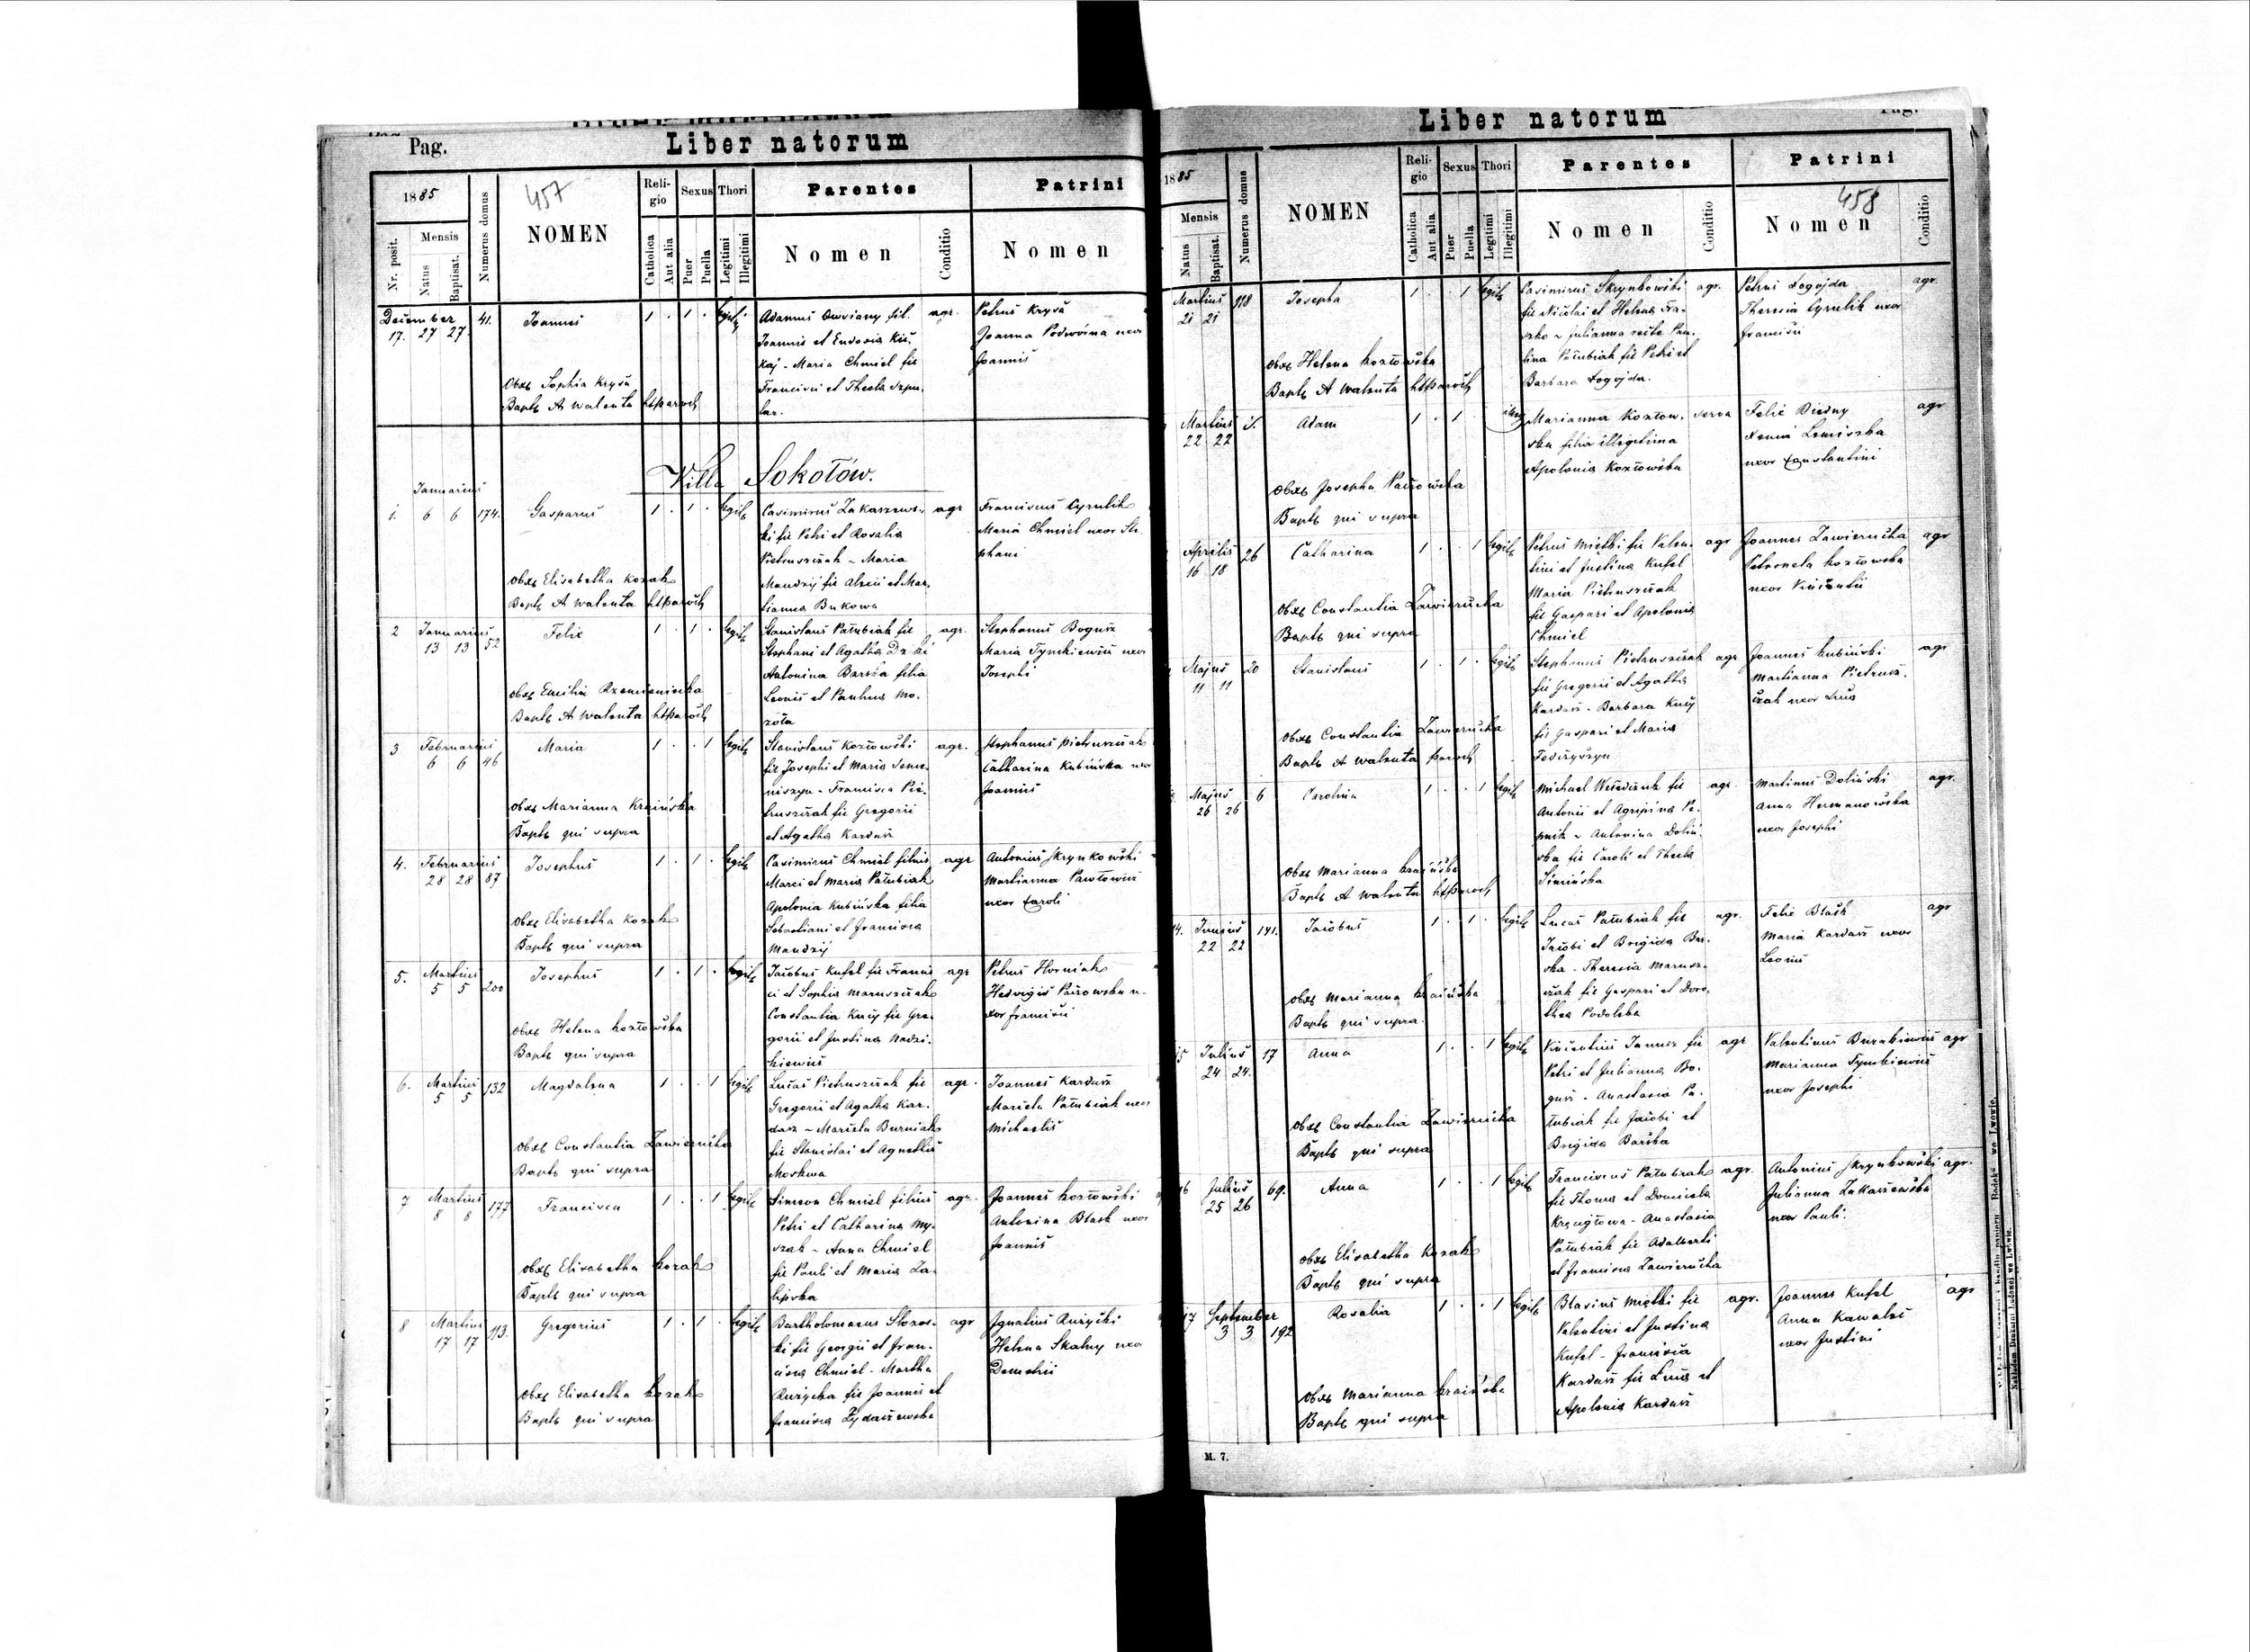 Pag.
Liber natorum
1885
Nr. posit.
Mensis
Natus
Baptisat.
Numerus domus
457
NOMEN
Religio
Catholica
Aut alia
Sexus
Puer
Puella
Thori
Legitimi
Illegitimi
Parentes
Nomen
Conditio
Patrini
Nomen
December
17. 27 27. 41. Joannes 1 . 1 . legit. agr.
Adamus fil.
Joannis et Eudosia
Maria Chmiel fil
Francisci et Thecla
Petrus Krysa
Joanna Podwoina uxor
Joannis
Obst Sophia Krysa
Bapt A Walenta
Villa Sokołów.
Januarius
1. 6 6 174. Gasparus 1 . 1 . legit agr
Casimirus Zakaszews-
ki fil Petri et Rosalia
Pietruszczak - Maria
Mandzij fil Alexii et Mar-
tianna Bukowa
Franciscus Cyrulik
Maria Chmiel uxor Ste
phani
Obst Elisabetha Kozak
Bapt A Walenta
2 Januarius
13 13 52 Felix 1 . 1 . legit agr.
Stanislaus Pałubiak fil
Stephani et Agatha
Antonina Barska filia
Leonis et Paulina Mo-
rota
Stephanus Bogusz
Maria Tymkiewicz uxor
Josephi
Obst Emilia Rzemieniecka
Bapt A Walenta
3 Februarius
6 6 46 Maria 1 . . 1 legit agr.
Stanislaus Kozłowski
fil Josephi et Maria Seme-
niszyn - Francisca Pie-
truszczak fil Gregorii
et Agatha Kardasz
Stephanus Pietruszczak
Catharina Kubińska uxor
Joannis
Obst Marianna Kraińska
Bapt qui supra
4. Februarius
28 28 87 Josephus 1 . 1 . legit agr
Casimirus Chmiel filius
Marci et Maria Pałubiak
Apolonia Kubińska filia
Sebastiani et Francisca
Mandzij
Antonius Skrynkowski
Martianna Pawłowicz
uxor Caroli
Obst Elisabetha Kozak
Bapt qui supra
5. Martius
5 5 200 Josephus 1 . 1 . legit agr
Jacobus Kufel fil Francis
ci et Sophia Maruszczak
Constantia Kucij fil Gre-
gorii et Justina Nadzi-
kiewicz
Petrus Horniak
Hedvigis Paczowska u-
xor Francisci
Obst Helena Kozłowska
Bapt qui supra
6. Martius
5 5 132 Magdalena 1 . . 1 legit agr.
Lucas Pietruszczak fil
Gregorii et Agatha Kar-
dasz - Marcela Burniak
fil Stanislai et Agnethis
Moskwa
Joannes Kardasz
Marcela Pałubiak uxor
Michaelis
Obst Constantia Zawierucka
Bapt qui supra
7 Martius
8 8 177 Francisca 1 . . 1 legit agr.
Simeon Chmiel filius
Petri et Catharina My-
szak - Anna Chmiel
fil Pauli et Maria Za-
lipska
Joannes Kozłowski
Antonina Blask uxor
Joannis
Obst Elisabetha Kozak
Bapt qui supra
8 Martius
17 17 113. Gregorius 1 . 1 . legit agr
Bartholomaeus
ki fil Georgii et Fran-
cisca Chmiel - Martha
Ruzycka fil Joannis et
Francisca Zydaczewska
Ignatius Ruzycki
Helena Skalny uxor
Demetrii
Obst Elisabetha Kozak
Bapt qui supra
Liber natorum
Pag.
1885
Mensis
Natus
Baptisat.
Numerus domus
NOMEN
Religio
Catholica
Aut alia
Sexus
Puer
Puella
Thori
Legitimi
Illegitimi
Parentes
Nomen
Conditio
Patrini
458
Nomen
Conditio
Martius
21 21 118 Josepha 1 . . 1 legit agr.
Casimirus Skrynkowski
fil Nicolai et Helena Fra-
szko - Julianna recte Pau-
lina Pałubiak fil Petri et
Barbara Łogojda.
Petrus Łogojda agr
Theresia Cyrulik uxor
Francisci
Obst Helena Kozłowska
Bapt A Walenta
Martius
22 22 Adam 1 . 1 . serva
Marianna Kozłow-
ska filia illegitima
Apolonia Kozłowska
Felix Biedny agr
Xenia Lewiszka
uxor Constantini
Obst Josepha Paczowska
Bapt qui supra
Aprilis
16 18 26 Catharina 1 . . 1 legit agr
Petrus Mietki fil Valen-
tini et Justina Kufel
Maria Pietruszczak
fil Gaspari et Apolonia
Chmiel
Joannes Zawierucka agr
Petronela Kozłowska
uxor Vincentii
Obst Constantia Zawierucka
Bapt qui supra
Majus
11 11 20 Stanislaus 1 . 1 . legit agr
Stephanus Pietruszczak
fil Gregorii et Agatha
Kardasz - Barbara Kucij
fil Gaspari et Maria
Fedczyszyn
Joannes Kubiński agr
Martianna Pietrusz-
czak uxor Luca
Obst Constantia Zawierucka
Bapt A Walenta paroch
Majus
26 26 6 Carolina 1 . . 1 legit agr.
Michael fil
Antonii et Agripina
Antonina Doliń-
ska fil Caroli et Thecla
Simińska
Martinus Doliński agr.
Anna Hermanowska
uxor Josephi
Obst Marianna Kraińska
Bapt A Walenta
14. Junius
22 22 141. Jacobus 1 . 1 . legit agr.
Lucas Pałubiak fil
Jacobi et Brigida Bar-
ska - Theresia Marusz-
czak fil Gaspari et Doro-
thea Podolska
Felix Blask agr
Maria Kardasz uxor
Leonis
Obst Marianna Kraińska
Bapt qui supra.
15 Julius
24 24. 17 Anna 1 . . 1 legit agr
Vincentius Janusz fil
Petri et Julianna Bo-
gusz - Anastasia Pa-
łubiak fil Jacobi et
Brigida Barska
Valentinus Burakiewicz agr
Marianna Tymkiewicz
uxor Josephi
Obst Constantia Zawierucka
Bapt qui supra
16 Julius
25 26 69. Anna 1 . . 1 legit agr.
Franciscus Pałubiak
fil Thoma et Domicela
Anastasia
Pałubiak fil Adalberti
et Francisca Zawierucka
Antonius Skrynkowski agr.
Julianna Zakaszewska
uxor Pauli.
Obst Elisabetha Kozak
Bapt qui supra
17 September
3 3 192 Rosalia 1 . . 1 legit agr.
Blasius Mietki fil
Valentini et Justina
Kufel - Francisca
Kardasz fil Luca et
Apolonia Kardasz
Joannes Kufel agr
Anna Kawalec
uxor Justini
Obst Marianna Kraińska
Bapt qui supra
M. 7.